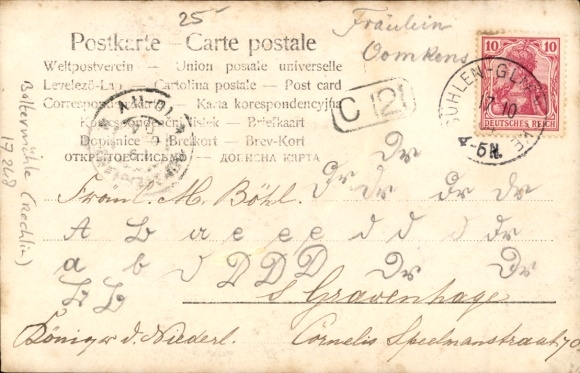 25-
Fräulein
Oomkens
Postkarte – Carte postale
Weltpostverein – Union postale universelle
Levelező-Lap – Cartolina postale – Post card
Correspondenzkarte – Karta korespondencyjna
Korespondenční lístek – Briefkaart
Dopisnice – Brefkort – Brev-Kort
ОТКРЫТОЕ ПИСЬМО – ДОПИСНА КАРТА
10 10
DEUTSCHES REICH
17 10
4-5N.
C 121
Dr
Dr Dr Dr Dr
Fräul. M. Böhl.
A L a e e e d d d dr
a b d D D D Dr Dr
S Gravenhage
Königr d. Niederl. Cornelis Speelmanstraat 70
Boltermühle (Rechlin)
17 248